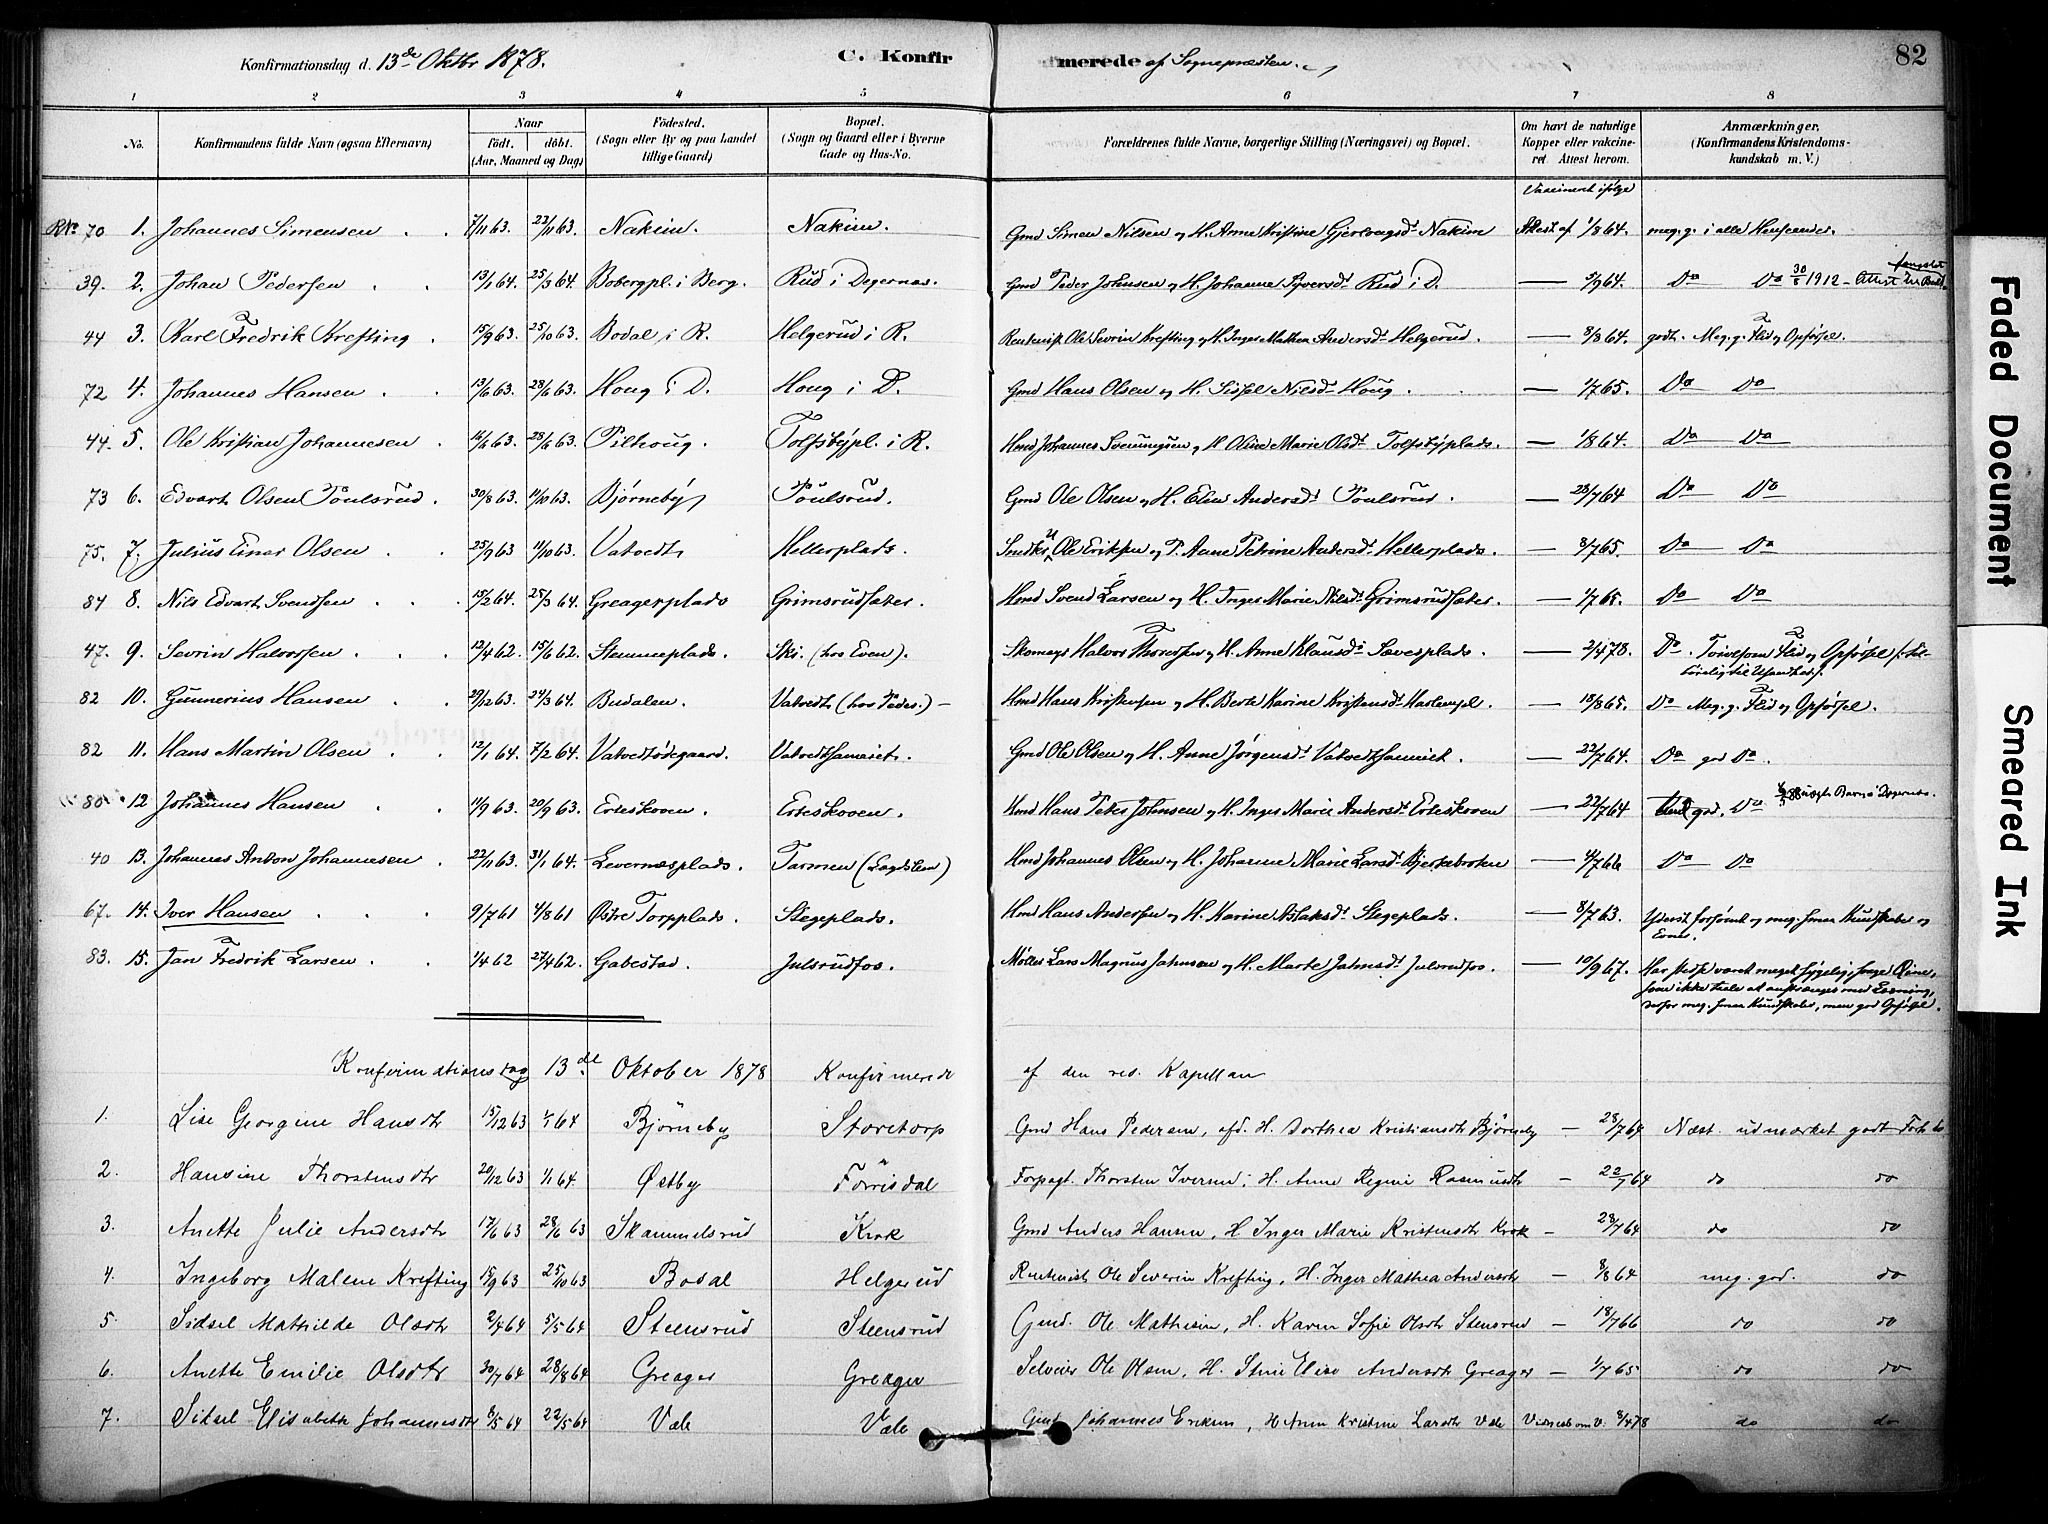 Konfirmationsdag d. 13de Oktbr 1878. C. Konfirmerede af Sognepræsten. 82
1 2 3 4 5 6 7 8
No. Konfirmandens fulde Navn (ogsaa Efternavn) Naar født. døbt. (Aar, Maaned og Dag) Fødested. (Sogn eller By og paa Landet tillige Gaard) Bopæl. (Sogn og Gaard eller i Byerne Gade og Hus-No. Forældrenes fulde Navne, borgerlige Stilling (Næringsvei) og Bopæl. Om havt de naturlige Kopper eller vakcineret. Attest herom. Anmærkninger. (Konfirmandens Kristendomskundskab m. V.)
Vaccineret ifølge
R.No 70 1. Johannes Simensen 7/11 63. 22/11 63. Nakim. Nakim. Gmd Simen Nilsen og H. Anne Kristine Nakim Attest af 1/8 64. meg. g. i alle Henseender.
39. 2. Johan Pedersen 13/1 64. 25/3 64. Bobergpl. i Berg. Rud i Degernæs. Gmd Peder Johnsen og H. Johanne Syversdt Rud i D. — 5/9 64. Do Do 30/8 1912 - Attest
44 3. Karl Fredrik Krefting 15/9 63. 25/10 63. Bodal i R. Helgerud i R. Ole Sevrin Krefting og H. Inger Mathea Andersdt Helgerud. — 8/8 64. godt. Meg. g. Flid og Opførsel.
72 4. Johannes Hansen 13/6 63. 28/6 63. Houg i D. Houg i D. Gmd Hans Olsen og H. Sidsel Nilsdt Houg. — 1/7 65. Do Do
44. 5. Ole Kristian Johannesen 16/6 63. 28/6 63. Pilhoug. Tolfsbypl. i R. Hmd Johannes Svenningsen og H Oline Marie Olsdt Tolfsbyplads. — 1/8 64. Do Do
73 6. Edvart Olsen Poulsrud. 30/8 63. 11/10 63. Bjørneby Poulsrud. Gmd Ole Olsen og H. Elin Andersdt Poulsrud. — 28/7 64 Do Do
75. 7. Julius Einar Olsen 25/9 63 11/10 63. Vatvedt Hellerplads. Ole Eriksen og P. Anne Petrine Andersdt Hellerplads. — 8/7 65. Do Do
84 8. Nils Edvart Svendsen 15/2 64. 25/3 64. Greagerplads Grimsrudsæter. Hmd Svend Larsen og H. Inger Marie Nilsdt Grimsrudsæter. — 1/7 65. Do Do
47. 9. Sevrin Halvorsen 12/4 62. 15/6 62. Stemmeplads. Ski. (hos Even). Halvor Thoresen og H. Anne Klausdt — 2/4 78. Do. Tvivlsom Flid og Opførsel
82 10. Gunnerius Hansen 29/12 63. 24/3 64. Budalen. Vatvedt (hos Peder.) — Hmd Hans Kristensen og H. Berte Karine Kristensdt — 18/8 65. Do Meg. g. Flid og Opførsel.
82 11. Hans Martin Olsen 12/1 64. 7/2 64. Vatvedtødegaard. Vatvedthameiet. Gmd Ole Olsen og H. Anne Jørgensdt Vatvedthameiet. — 22/7 64. Do god Do.
80 12 Johannes Hansen 1/9 63. 20/9 63. Erteskoven. Erteskoven. Hmd Hans Peter Johnsen og H. Inger Marie Andersdt Erteskoven — 22/7 64 god. Do
40 13. Johannes Anton Johannesen 22/11 63. 31/1 64. Levernæsplads. Tarmen Hmd Johannes Olsen og H. Johanne Marie Larsdt Bjerkebroten — 4/7 66 Do Do
67. 14. Iver Hansen 9/7 61 4/8 61 Østre Torpplads. Stegeplads. Hmd Hans Andersen og H. Karine Aslaksdt Stegeplads. — 8/7 63. Yderst forsømt og meg. smaa Kundskaber og Evner.
83. 15. Jan Fredrik Larsen 1/4 62 27/4 62. Gabestad. Julsrudfos. Møller Lars Magnus Jahnsen og H. Marte Jahnsdt Julsrudfos. — 10/9 67. Har stedse været meget sygelig, svage Øine,
som ikke taale at anstrænges med Læsning,
derfor meg. smaa Kundskaber, men god Opførsel.
Konfirmationsdag 13de Oktober 1878 Konfirmerede af den res. Kapellan
1. Lise Georgine Hansdtr 15/12 63 1/1 64 Bjørneby Storetorp Gmd Hans Pedersen, afd. H. Dorthea Kristiansdtr Bjørneby — 28/7 64 Næst. udmærket godt
2. Hansine Thorstensdtr 20/12 63 1/1 64. Østby Førrisdal Forpagt. Thorsten Iversen, H. Anne Regine Rasmusdtr — 22/7 64 do do
3. Anette Julie Andersdtr 17/6 63 28/6 63 Skammelsrud Krok Gmd Anders Hansen, H Inger Marie Kristensdtr Krok — 28/7 64 do do
4. Ingeborg Malene Krefting 15/9 63 25/10 63 Bodal Helgerud Ole Severin Krefting, H. Inger Mathea Andersdtr — 8/8 64 meg. god. do
5. Sidsel Mathilde Olsdtr 2/4 64 5/5 64 Steensrud Steensrud Gmd. Ole Mathisen, H. Karen Sofie Olsdtr Stensrud — 18/7 66 do do
6. Anette Emilie Olsdtr 30/7 64 28/8 64 Greager Greager Selveier Ole Olsen, H. Stine Elise Andersdtr Greager — 1/7 65 do do
7. Sidsel Elisabeth Johannesdtr 8/5 64 22/5 64 Væle Væle Gmd. Johannes Eriksen, H Anne Kristine Larsdtr Væle Vidnesb om V. 8/4 78 do do
Faded Document
Smeared Ink